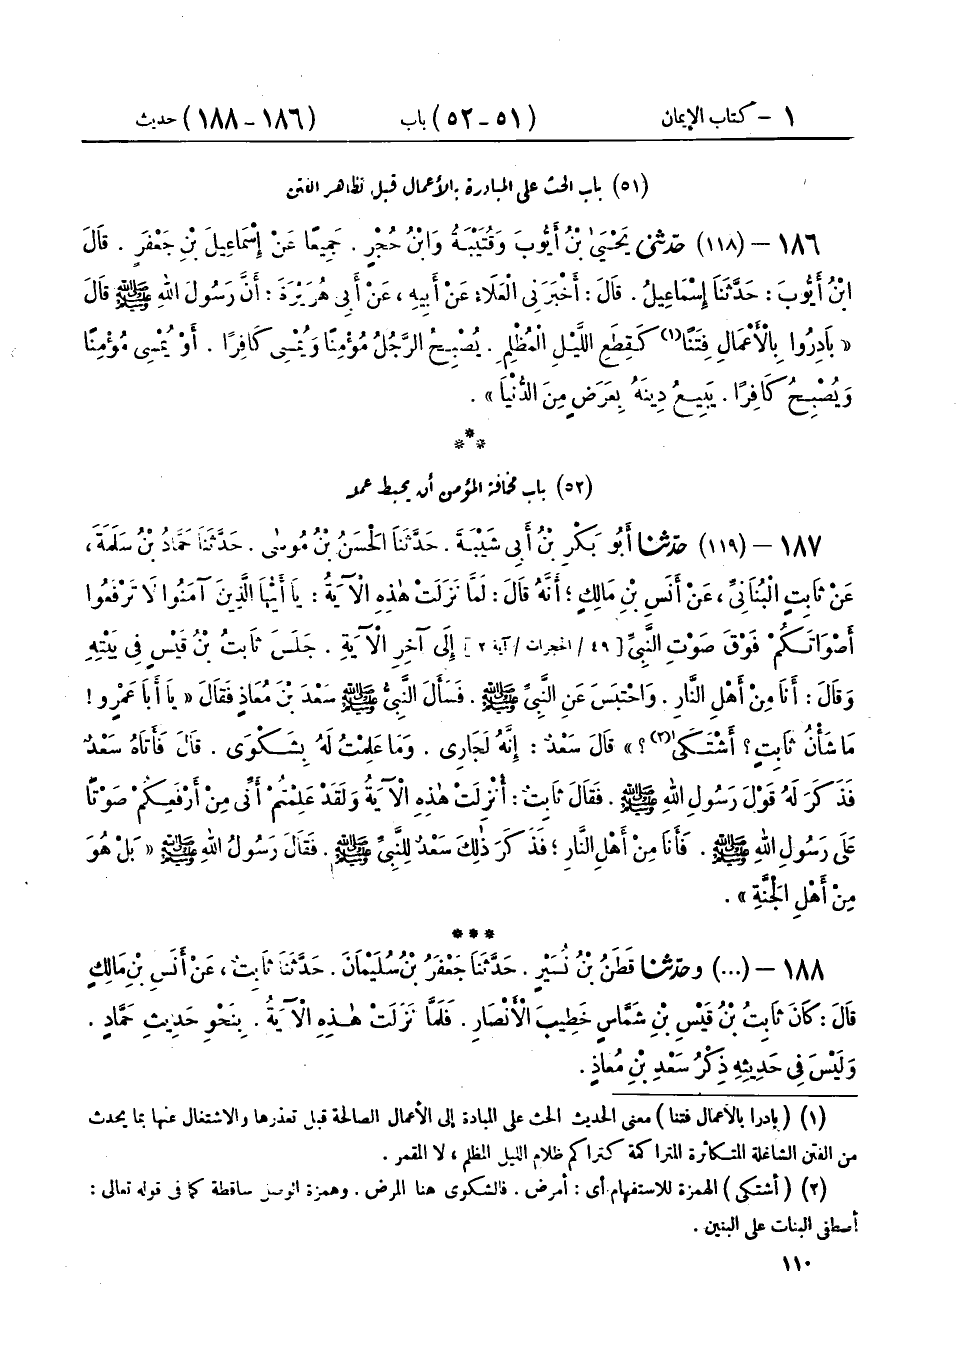 ١ - كتاب الإيمان (٥١ - ٥٢) باب (١٨٦ - ١٨٨) حديث
(٥١) باب الحث على المبادرة بالأعمال قبل تظاهر الفتن
١٨٦ - (١١٨) حَدَّثَنِي يَحْيَىٰ بْنُ أَيُّوبَ وَقُتَيْبَةُ وَابْنُ حُجْرٍ . جَمِيعًا عَنْ إِسْمَاعِيلَ بْنِ جَعْفَرٍ . قَالَ
ابْنُ أَيُّوبَ : حَدَّثَنَا إِسْمَاعِيلُ . قَالَ : أَخْبَرَنِي الْعَلَاءُ عَنْ أَبِيهِ ، عَنْ أَبِي هُرَيْرَةَ : أَنَّ رَسُولَ اللهِ ﷺ قَالَ
« بَادِرُوا بِالْأَعْمَالِ فِتَنًا(١) كَقِطَعِ اللَّيْلِ الْمُظْلِمِ . يُصْبِحُ الرَّجُلُ مُؤْمِنًا وَيُمْسِي كَافِرًا . أَوْ يُمْسِي مُؤْمِنًا
وَيُصْبِحُ كَافِرًا . يَبِيعُ دِينَهُ بِعَرَضٍ مِنَ الدُّنْيَا » .
***
(٥٢) باب مخافة المؤمن أن يحبط عمله
١٨٧ - (١١٩) حَدَّثَنَا أَبُو بَكْرِ بْنُ أَبِي شَيْبَةَ . حَدَّثَنَا الْحَسَنُ بْنُ مُوسَى . حَدَّثَنَا حَمَّادُ بْنُ سَلَمَةَ ،
عَنْ ثَابِتٍ الْبُنَانِيِّ ، عَنْ أَنَسِ بْنِ مَالِكٍ ؛ أَنَّهُ قَالَ : لَمَّا نَزَلَتْ هٰذِهِ الْآيَةُ : يَا أَيُّهَا الَّذِينَ آمَنُوا لَا تَرْفَعُوا
أَصْوَاتَكُمْ فَوْقَ صَوْتِ النَّبِيِّ [ ٤٩ / الحجرات / آية ٢ ] إِلَى آخِرِ الْآيَةِ . جَلَسَ ثَابِتُ بْنُ قَيْسٍ فِي بَيْتِهِ
وَقَالَ : أَنَا مِنْ أَهْلِ النَّارِ . وَاحْتَبَسَ عَنِ النَّبِيِّ ﷺ . فَسَأَلَ النَّبِيُّ ﷺ سَعْدَ بْنَ مُعَاذٍ فَقَالَ « يَا أَبَا عَمْرٍو !
مَا شَأْنُ ثَابِتٍ ؟ أَشْتَكَى(٢) ؟ » قَالَ سَعْدٌ : إِنَّهُ لَجَارِي . وَمَا عَلِمْتُ لَهُ بِشَكْوَى . قَالَ فَأَتَاهُ سَعْدٌ
فَذَكَرَ لَهُ قَوْلَ رَسُولِ اللهِ ﷺ . فَقَالَ ثَابِتٌ : أُنْزِلَتْ هٰذِهِ الْآيَةُ وَلَقَدْ عَلِمْتُمْ أَنِّي مِنْ أَرْفَعِكُمْ صَوْتًا
عَلَى رَسُولِ اللهِ ﷺ . فَأَنَا مِنْ أَهْلِ النَّارِ ؛ فَذَكَرَ ذٰلِكَ سَعْدٌ لِلنَّبِيِّ ﷺ . فَقَالَ رَسُولُ اللهِ ﷺ « بَلْ هُوَ
مِنْ أَهْلِ الْجَنَّةِ » .
***
١٨٨ - (...) وحَدَّثَنَا قَطَنُ بْنُ نُسَيْرٍ . حَدَّثَنَا جَعْفَرُ بْنُ سُلَيْمَانَ . حَدَّثَنَا ثَابِتٌ ، عَنْ أَنَسِ بْنِ مَالِكٍ
قَالَ : كَانَ ثَابِتُ بْنُ قَيْسِ بْنِ شَمَّاسٍ خَطِيبَ الْأَنْصَارِ . فَلَمَّا نَزَلَتْ هٰذِهِ الْآيَةُ . بِنَحْوِ حَدِيثِ حَمَّادٍ .
وَلَيْسَ فِي حَدِيثِهِ ذِكْرُ سَعْدِ بْنِ مُعَاذٍ .
(١) ( بادرا بالأعمال فتنا ) معنى الحديث الحث على المبادة إلى الأعمال الصالحة قبل تعذرها والاشتغال عنها بما يحدث
من الفتن الشاغلة المتكاثرة المتراكمة كتراكم ظلام الليل المظلم ، لا المقمر .
(٢) ( أشتكى ) الهمزة للاستفهام أى : أمرض . فالشكوى هنا المرض . وهمزة الوصل ساقطة كما فى قوله تعالى :
أصطفى البنات على البنين .
١١٠